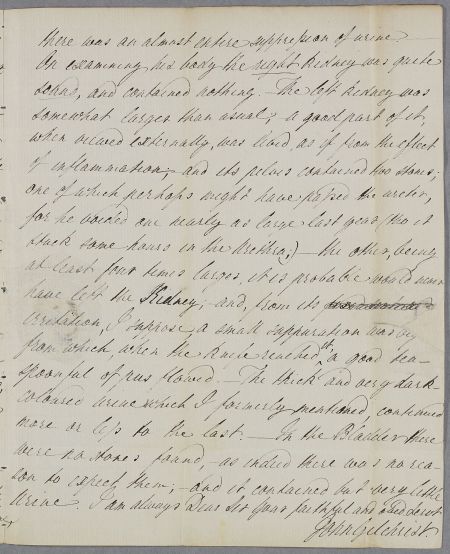 there was an almost entire suppression of urine.—
On examining his body the right kidney was quite
sound, and contained nothing.— The left kidney was
somewhat larger than usual; a good part of it,
when viewed externally, was livid, as if from the effect
of inflammation; and its pelvis contained two stones;
one of which perhaps might have passed the ureter,
for he voided one nearly as large last year (tho it
stuck some hours in the Urethra;) — the other, being
at least four times larger, it is probable would never
have left the Kidney; and, from its
irritation, I suppose, a small suppuration
from which when the knife reached it, a good tea-
spoonful of pus flowed.— The thick and very dark-
coloured urine which I formerly mentioned, continued
more or less to the last.— In the Bladder there
were no stones found, — as indeed there was no rea-
son to expect them; — and it contained but very little
Urine. I am always Dear Sir Your faithful and
John Gilchrist.